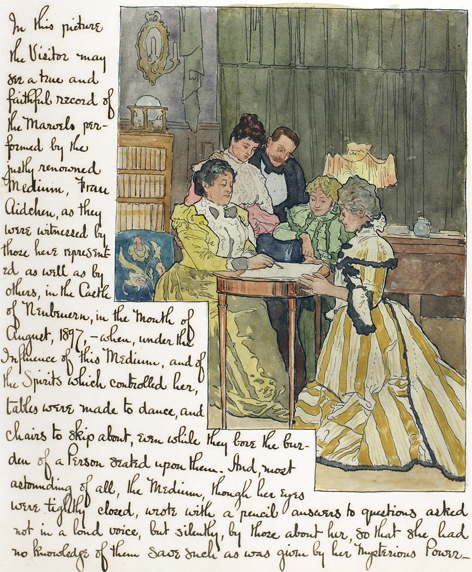 In this picture
the Visitor may
see a true and
faithful record of
the Marvels per-
formed by the
justly renowned
Medium, Frau
Aidchen, as they
were witnessed by
those here represent-
ed as well as by
others, in the Castle
of Neubeuern, in the Month of
August, 1897, — when, under the
Influence of this Medium, and of
the Spirits which controlled her,
tables were made to dance, and
chairs to skip about, even while they bore the bur-
den of a Person seated upon them. And, most
astounding of all, the Medium, though her eyes
were tightly closed, wrote with a pencil answers to questions asked
not in a loud voice, but silently, by those about her, so that she had
no knowledge of them save such as was given by her Mysterious Power—